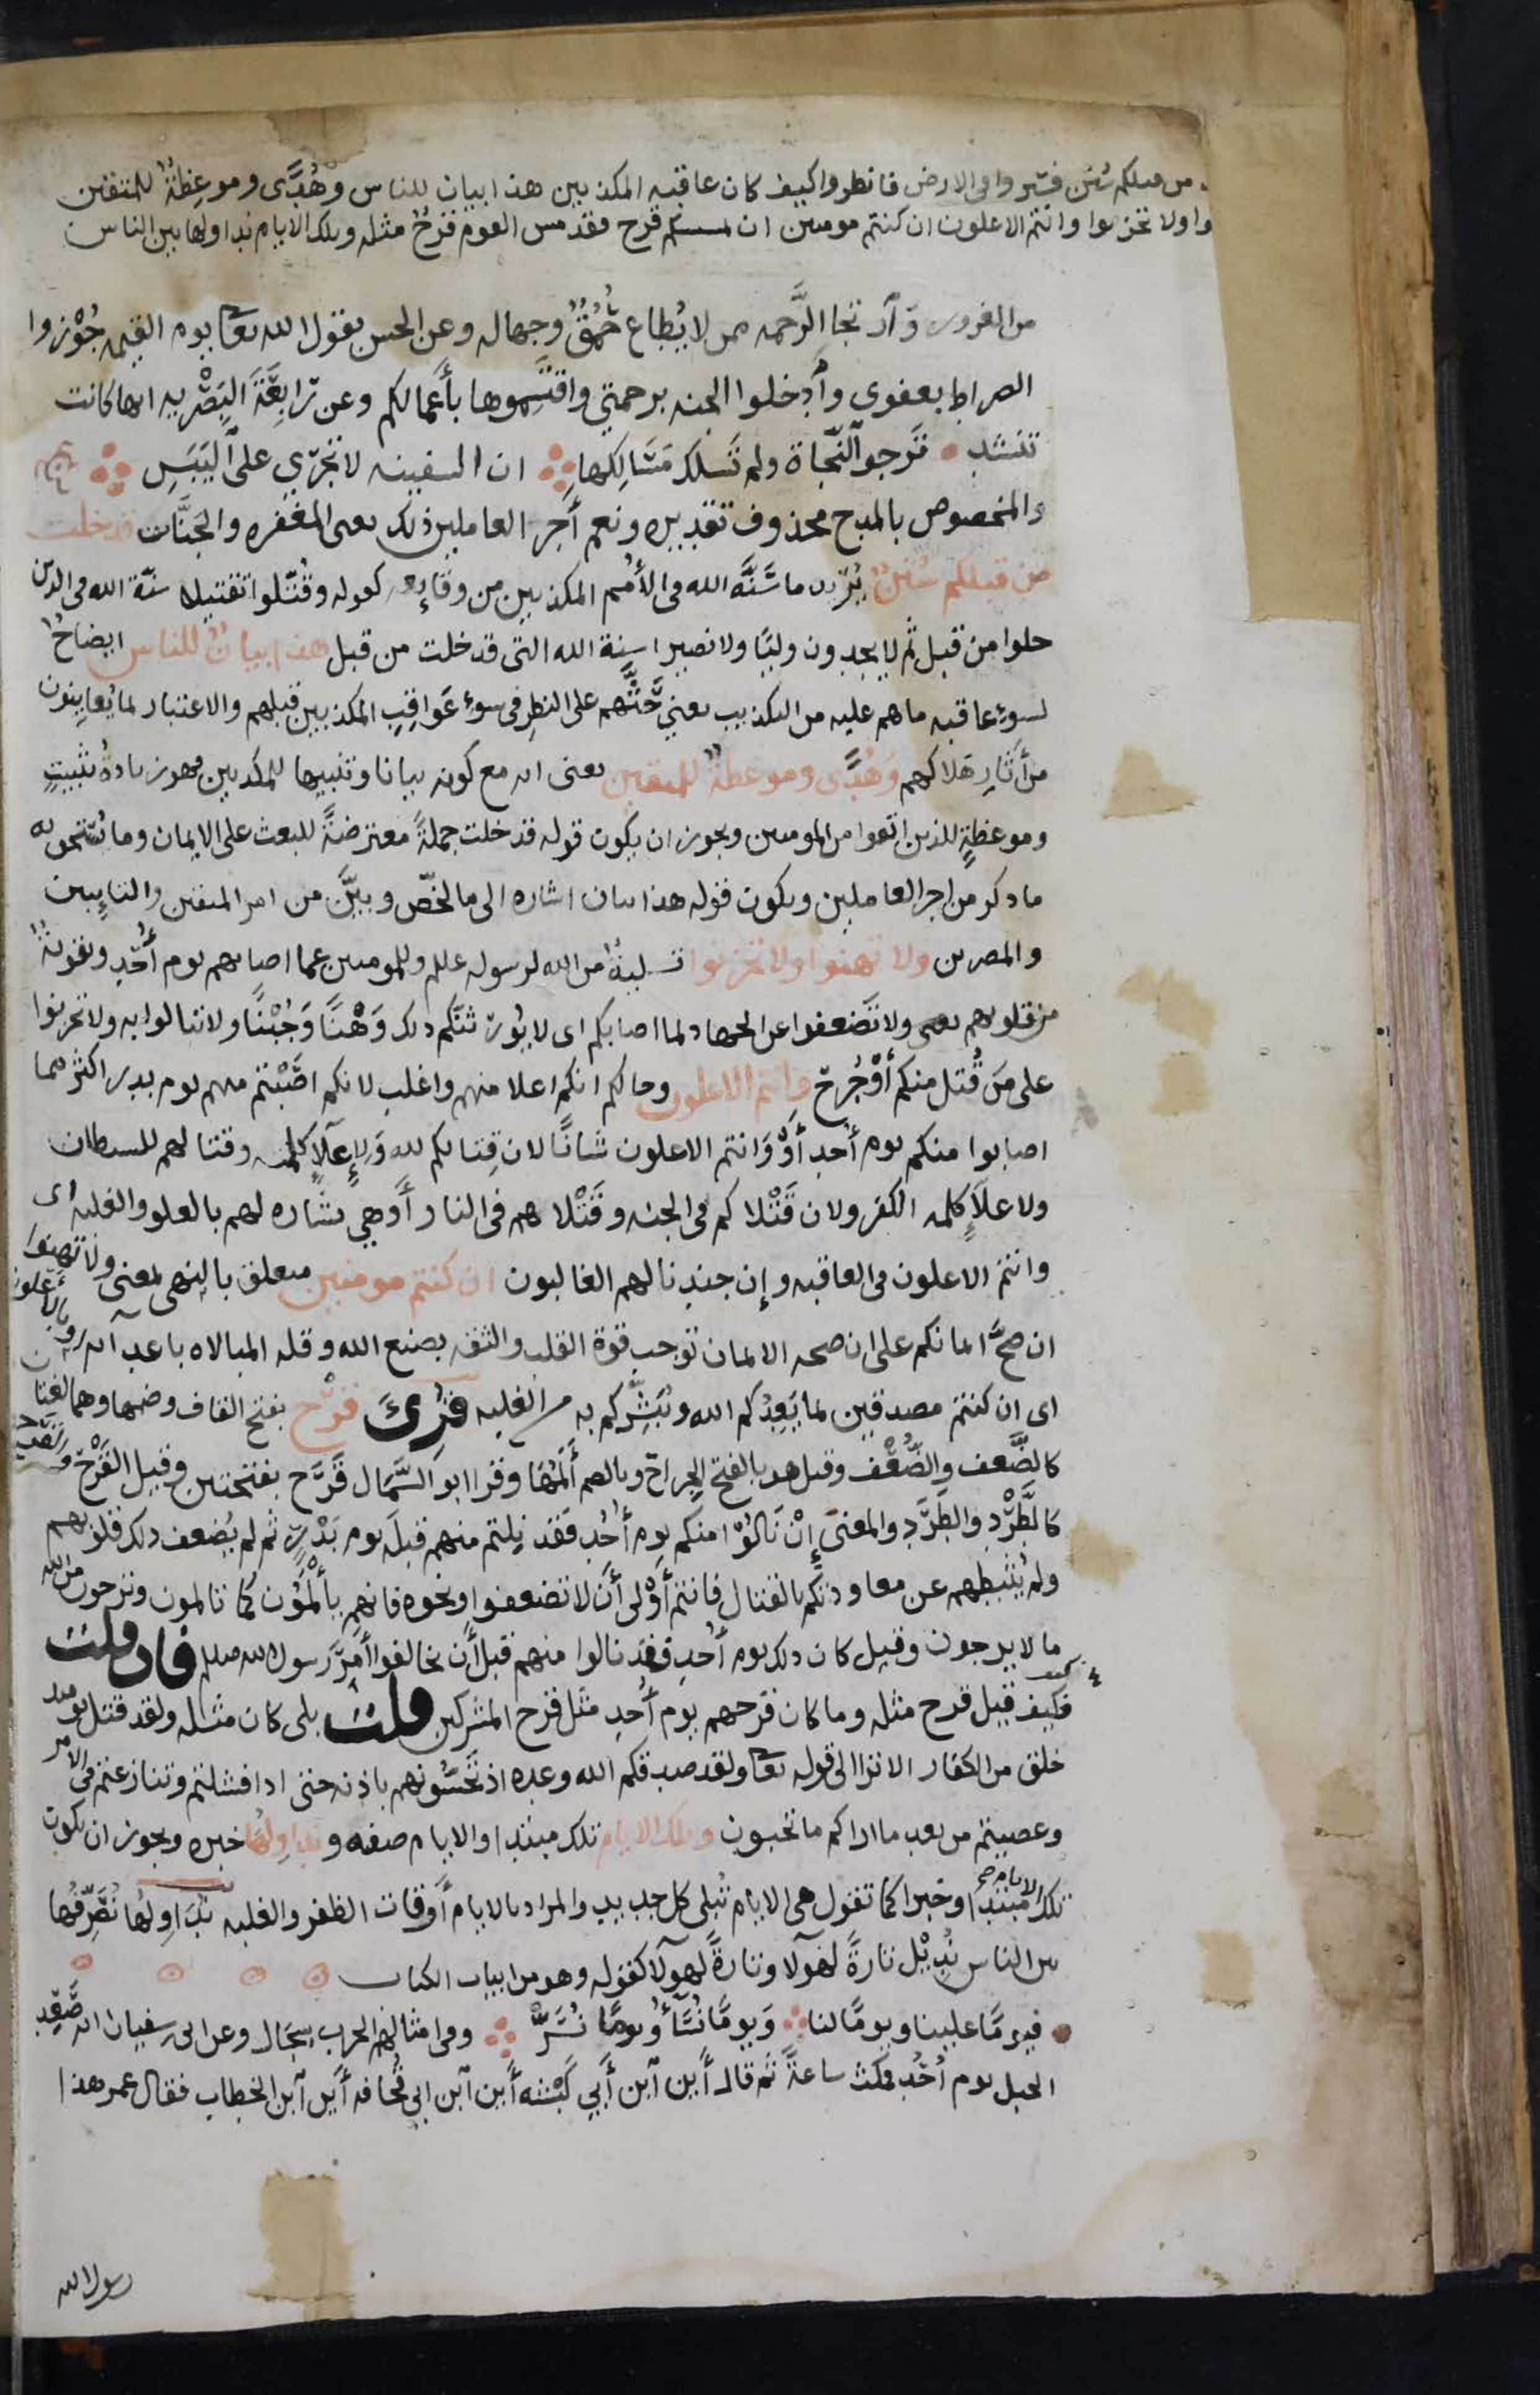 من قبلكم سنن فسيروا في الارض فانظروا كيف كان عاقبه المكذبين هذا بيان للناس وهُدًى وموعِظةٌ للمتقين
وا ولا تحزنوا وانتم الاعلون ان كنتم مومنين ان يمسسكم قرح فقد مس القوم قرحٌ مثله وتلك الايام نداولها بين الناس
من الغرور وآرتجا الرَّحمه ممن لا يُطاع حُمُقٌ وجهاله وعن الحسن يقول الله تعا يوم القيمه جُوْزوا
الصراط بعفوي وآدخلوا الجنه برحمتي واقتَسِموها بأعمالكم وعن رَابِعَةَ البَصْريه انها كانت
تنشد تَرجو النّجاة ولم تَسلك مَسَالِكَها ان السفينه لا تجرّي على اليَبَسِ
والمخصوص بالمدح محذوف تقديره ونعم أجر العاملين ذلك يعني المغفره والجَنَّات قد خلت
من قبلكم سُنَنٌ يُريد ما سَنَّه الله في الأُمم المكذبين من وقَايِعه كقوله وقُتّلوا تقتيلا سنّة الله في الذين
خلوا من قبل ثم لا يجدون وليًا ولا نصيرا سنة الله التى قد خلت من قبل هذا بيانٌ للناس ايضاحٌ
لسوءِ عاقبه ما هم عليه من التكذيب يعني حَثَّهم على النظرِ في سوءِ عَواقِبِ المكذبين قبلهم والاعتبار لما يُعاينون
من أثارِ هَلاكهم وَهُدًى وموعظةٌ للمتقين يعنى انه مع كونه بيانا وتنبيها للمكذبين فهو زيادةُ تثبيتٍ
وموعظةٍ للذين اتقوا من المومنين ويجوز ان يكون قوله قد خلت جملةً معترضةً للبعث على الايمان وما يُستحق به
ما ذكر من اجر العاملين ويكون قوله هذا بيان اشاره الى ما لخّص وبيَّن من امر المتقين والتايبين
والمصرين ولا تهنوا ولا تحزنوا تسليةٌ من الله لرسوله عللم وللمومنين عما اصابهم يوم أُحُدٍ وتقويةٌ
من قلوبهم يعني ولا تَضعفوا عن الجهاد لما اصابكم اى لا يُورثنَّكم ذلك وَهْنًا وَجُبْنًا ولا تبالوا به ولا تحزنوا
على مَن قُتل منكم أوْجُرحَ وانتم الاعلون وحالكم انكم اعلا منهم واغلب لانكم اصَبْتم منهم يوم بدر اكثر مما
اصابوا منكم يوم أُحد أوْ وَانتم الاعلون شانًا لان قِتالكم لله وَلِإعلآءِ كلمته وقتالهم للشيطان
ولاعلآءِ كلمه الكفر ولان قَتْلاكم في الجنه وقَتْلاهم في النار أو هي بشاره لهم بالعلو والغلبه اى
وانتم الاعلون في العاقبه وإن جندنا لهم الغالبون ان كنتم مومنين متعلق بالنهي بمعنى ولا تهنوا
ان صحَّ ايمانكم على ان صحه الايمان توجب قوة القلب والثقه بصنع الله وقله المبالاه باعدآيه او بالأعلون
اى ان كنتم مصدقين لما يَعِدُكم الله ويُبَشِّركم به من الغلبه قُرِئَ قرْح بفتح القاف وضمها وهما لغتان
كالضَّعف والضُّعْف وقيل هو بالفتح الجراح وبالضم أَلَمُها وقرا ابو السَّمَال قَرَح بفتحتين وقيل القَرْح والقَرَح
كالطَّرْدِ والطَّرَدِ والمعنى إنْ نَالُوْا منكم يوم أُحُدٍ فَقد نِلتم منهم قبلَه يوم بَدْرٍ ثم لم يُضعف ذلك قلوبهم
ولم يُثَبِّطهم عن معاودتكم بالقتال فانتم أوْلى أن لا تضعفوا ونحوه فانهم يألَمُون كما تالمون وترجون من الله
ما لا يرجون وقيل كان ذلك يوم أُحدٍ فقد نالوا منهم قبل أن يخالفوا أمرَ رسول الله صللم فان قلت
فكيف قيل قرح مثله وما كان قرحهم يوم أُحدٍ مثل قرح المشركين قلت بلى كان مثله ولقد قتل يوميذ
خلق من الكفار الا ترا الى قوله تعا ولقد صدقكم الله وعده اذ تَحُسُّونهم باذنه حتى اذا فشلتم وتنازعتم في الأمر
وعصيتم من بعد ما اراكم ما تحبون وتلك الايام تلك مبتدا والايام صفه ونداولُها خبره ويجوز ان يكون
تلك الايام مبتدا وخبرا كما تقول هي الايام تُبلي كل جديد والمراد بالايام أوقات الظفر والغلبه نداولها نُصَرِّفُها
بين الناس نُدِيْل تارةً لهولآ وتارةً لهولآ كقوله وهو من ابيات الكتاب
فيومًا علينا ويومًا لنا وَيومًا نُسَآءُ ويومًا نُسَرُّ وفي امثالهم الحرب سِجَال وعن ابي سفيان انه صَعِد
الجبل يوم أُحُدٍ فمكث ساعةً ثم قال أين آبن أبي كَبْشه أين آبن ابي قُحافه أين آبن الخطاب فقال عمر هذا
رسول الله